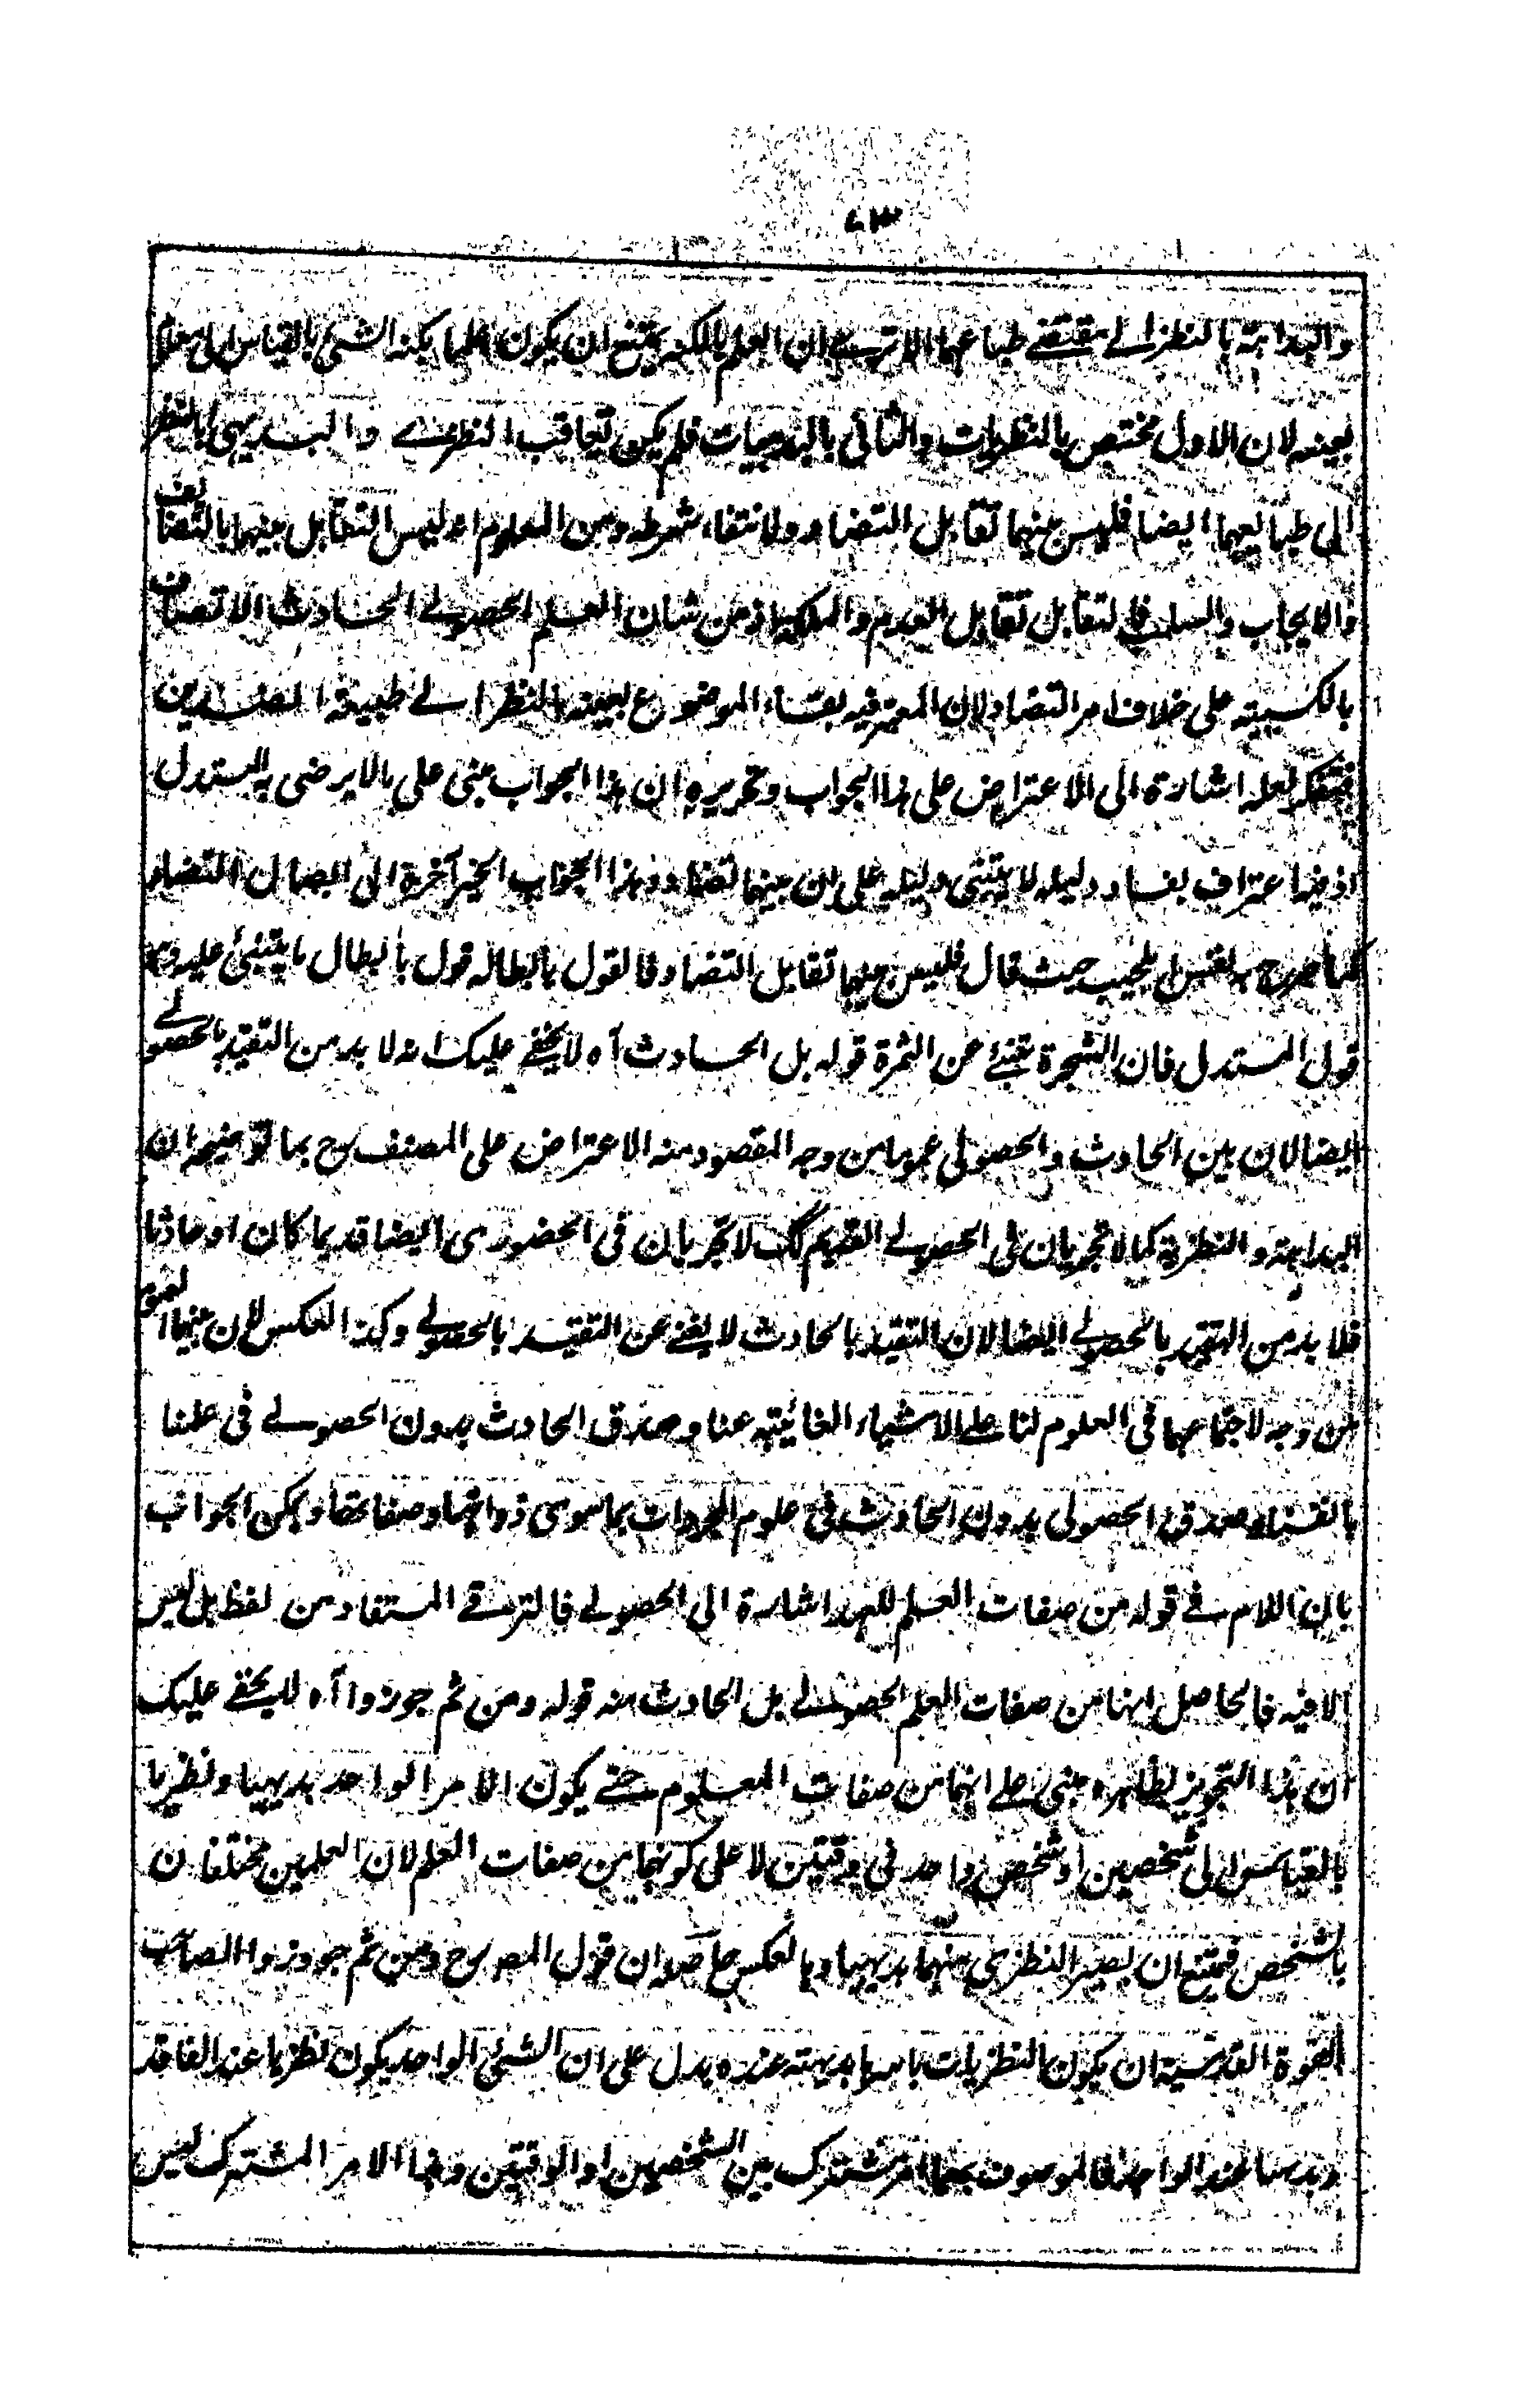 ٤٣
والبداهة بالنظر الے مقتضے طباعهما الا ترے ان العلم بالكنه يمتنع ان يكون علما بكنه الشئ بالقياس الى معلوم
بعينه لان الاول مختص بالنظريات والثانى بالبديهيات فلم يكن تعاقب النظرے والبديهى بالنظر
الى طبايعهما ايضا فليس بينهما تقابل التضاد ولانتفاء شرطه ومن المعلوم انه ليس التقابل بينهما بالتضايف
والايجاب والسلب فالتقابل تقابل العدم والملكة اذ من شان العلم الحصولے الحادث الاتصاف
بالكسبية على خلاف امر التضاد لان المعتبر فيه بقاء الموضوع بعينه بالنظر الے طبيعة الضدين
فتفكر لعله اشارة الى الاعتراض على هذا الجواب وتحريره ان هذا الجواب مبنى على ما لا يرضى به المستدل
اذ فيه اعتراف بفساد دليله لا يبتنى دليله على ان بينهما تضاد وهذا الجواب انجر آخره الى ابطال التضاد
كما صرح به نفس المجيب حيث قال فليس بينهما تقابل التضاد فالقول بابطاله قول بابطال ما يبتنى عليه وهو
قول المستدل فان الشجرة تنبئے عن الثمرة قوله بل الحادث آه لا يخفے عليك انه لا بد من التقييد بالحصولے
ايضا لان بين الحادث والحصولى عموما من وجه المقصود منه الاعتراض على المصنف رح بما توضيحه ان
البداهة والنظرية كما لا تجريان فى الحصولے القديم كك لا تجريان فى الحضورى ايضا قديما كان او حادثا
فلا بد من التقييد بالحصولے ايضا لان التقييد بالحادث لا يغنے عن التقييد بالحصولے وكذا العكس لان بينهما العموم
من وجه لاجتماعهما فى العلوم لنا علے الاشياء الغائبة عنا وصدق الحادث بدون الحصولے فى علمنا
بانفسنا وصدق الحصولى بدون الحادث فى علوم المجردات بما سوى ذواتها وصفاتها ويمكن الجواب
بان اللام فے قوله من صفات العلم للعهد اشارة الى الحصولے فالترقے المستفاد من لفظ بل ليس
الا فيه فالحاصل انهما من صفات العلم الحصولے بل الحادث منه قوله ومن ثم جوزوا آه لا يخفے عليك
ان هذا التجويز بظاهره مبنى علے انهما من صفات المعلوم حتے يكون الامر الواحد بديهيا ونظريا
بالقياس الى شخصين او شخص واحد فى وقتين لا على كونهما من صفات العلم لان العلمين مختلفان
بالشخص فيمتنع ان يصير النظرى منهما بديهيا وبالعكس حاصله ان قول المص رح ومن ثم جوزوا لصاحب
القوة القدسية ان يكون النظريات باسرها بديهية عنده يدل على ان الشئ الواحد يكون نظريا عند الفاقد
وبديهيا عند الواجد فالموصوف بهما امر مشترك بين الشخصين او الوقتين وهذا الامر المشترك ليس